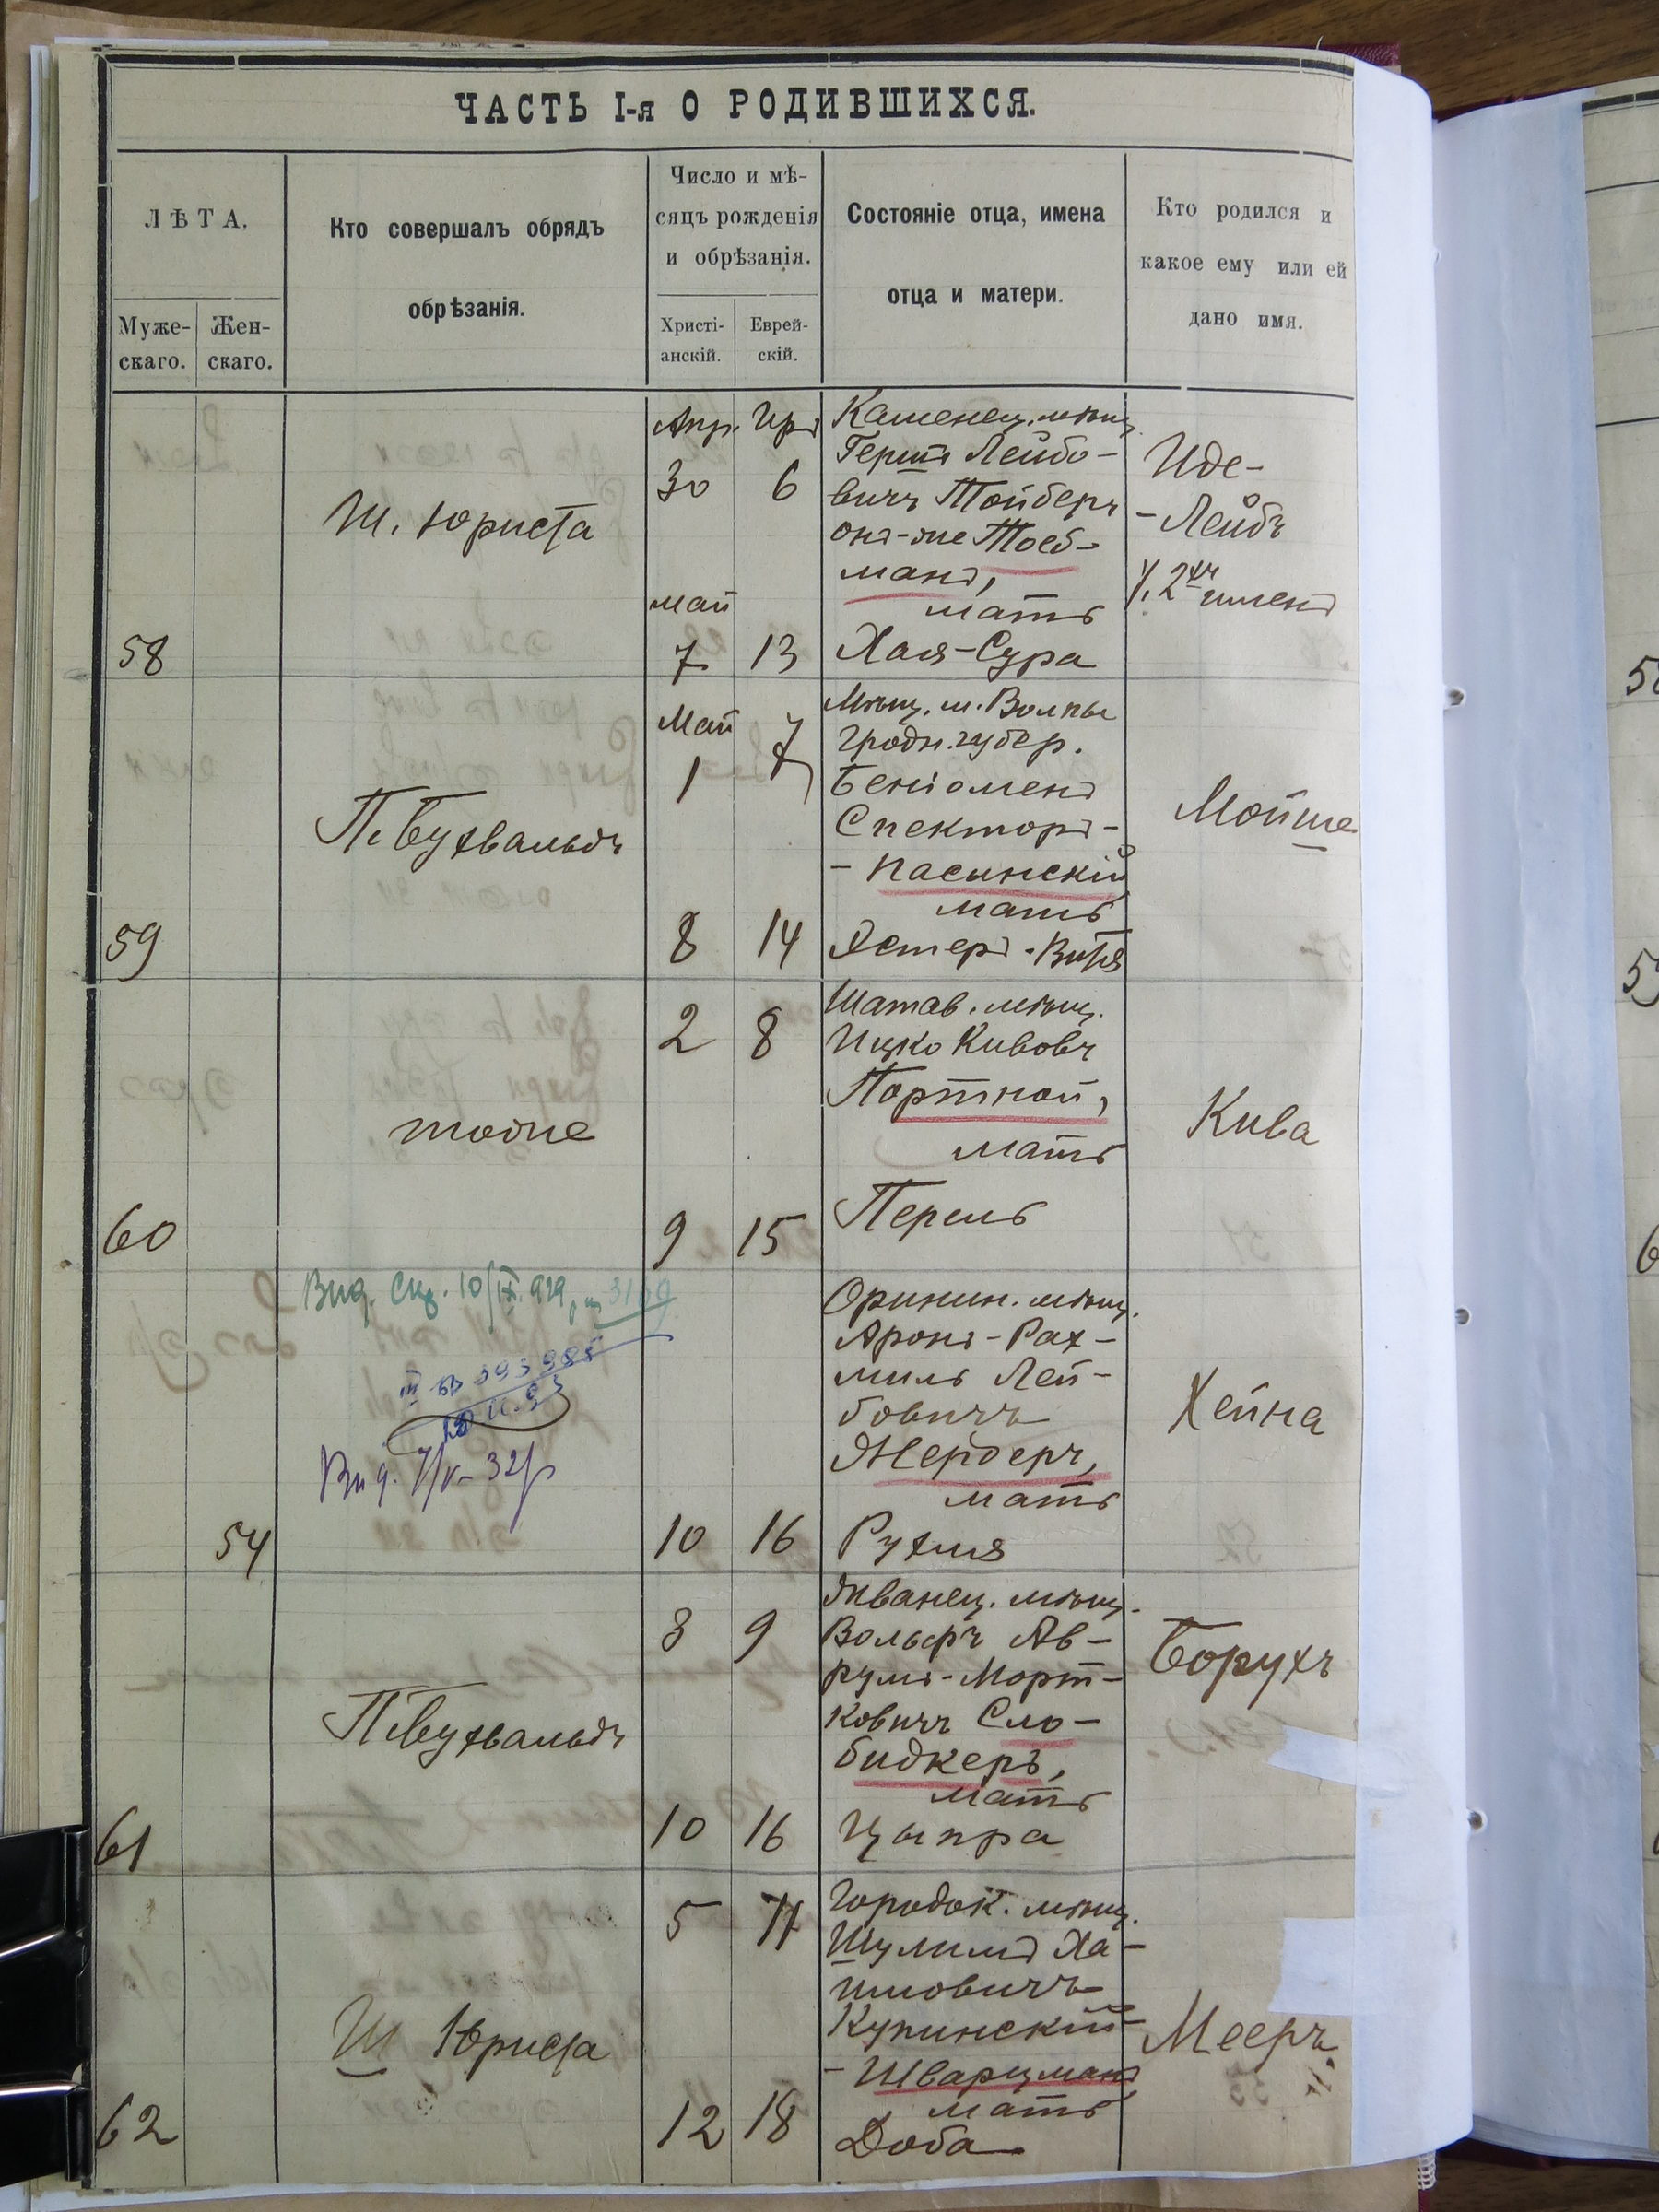 ЧАСТЬ I-я О РОДИВШИХСЯ.
ЛѢТА.
Муже-
скаго.
Жен-
скаго.
Кто совершалъ обрядъ
обрѣзанія.
Число и мѣ-
сяцъ рожденія
и обрѣзанія.
Христі-
анскій.
Еврей-
скій.
Состояніе отца, имена
отца и матери.
Кто родился и
какое ему или ей
дано имя.
58
Ш. Юриста
Апр. Іра
30 6
май
7 13
Каменец. мѣщ.
Гершъ Лейбо-
вичъ Тойберъ
онъ-же Тоеб-
манъ,
мать
Хая-Сура
Иде-
-Лейбъ
59
П. Бухвальдъ
Май
1 7
8 14
Мѣщ. м. Волпы
Гродн. губер.
Беніоменъ
Спекторъ-
-Пасынскій
мать
Эстеръ-Витя
Мойше
60
тоже
2 8
9 15
Шатав. мѣщ.
Ицко Кивовъ
Портной,
мать
Перель
Кива
54
10 16
Оринин. мѣщ.
Аронъ-Рах-
миль Лей-
бовичъ
Жердеръ,
мать
Рухля
Хейна
61
П. Бухвальдъ
3 9
10 16
Жванец. мѣщ.
Вольфъ Ав-
румъ-Морт-
ковичъ Сло-
бидкеръ,
мать
Ципра
Борухъ
62
Ш Юриста
5 11
12 18
Городок. мѣщ.
Шулимъ Ха-
имовичъ
Купинскій-
-Шварцманъ
мать
Доба
Мееръ